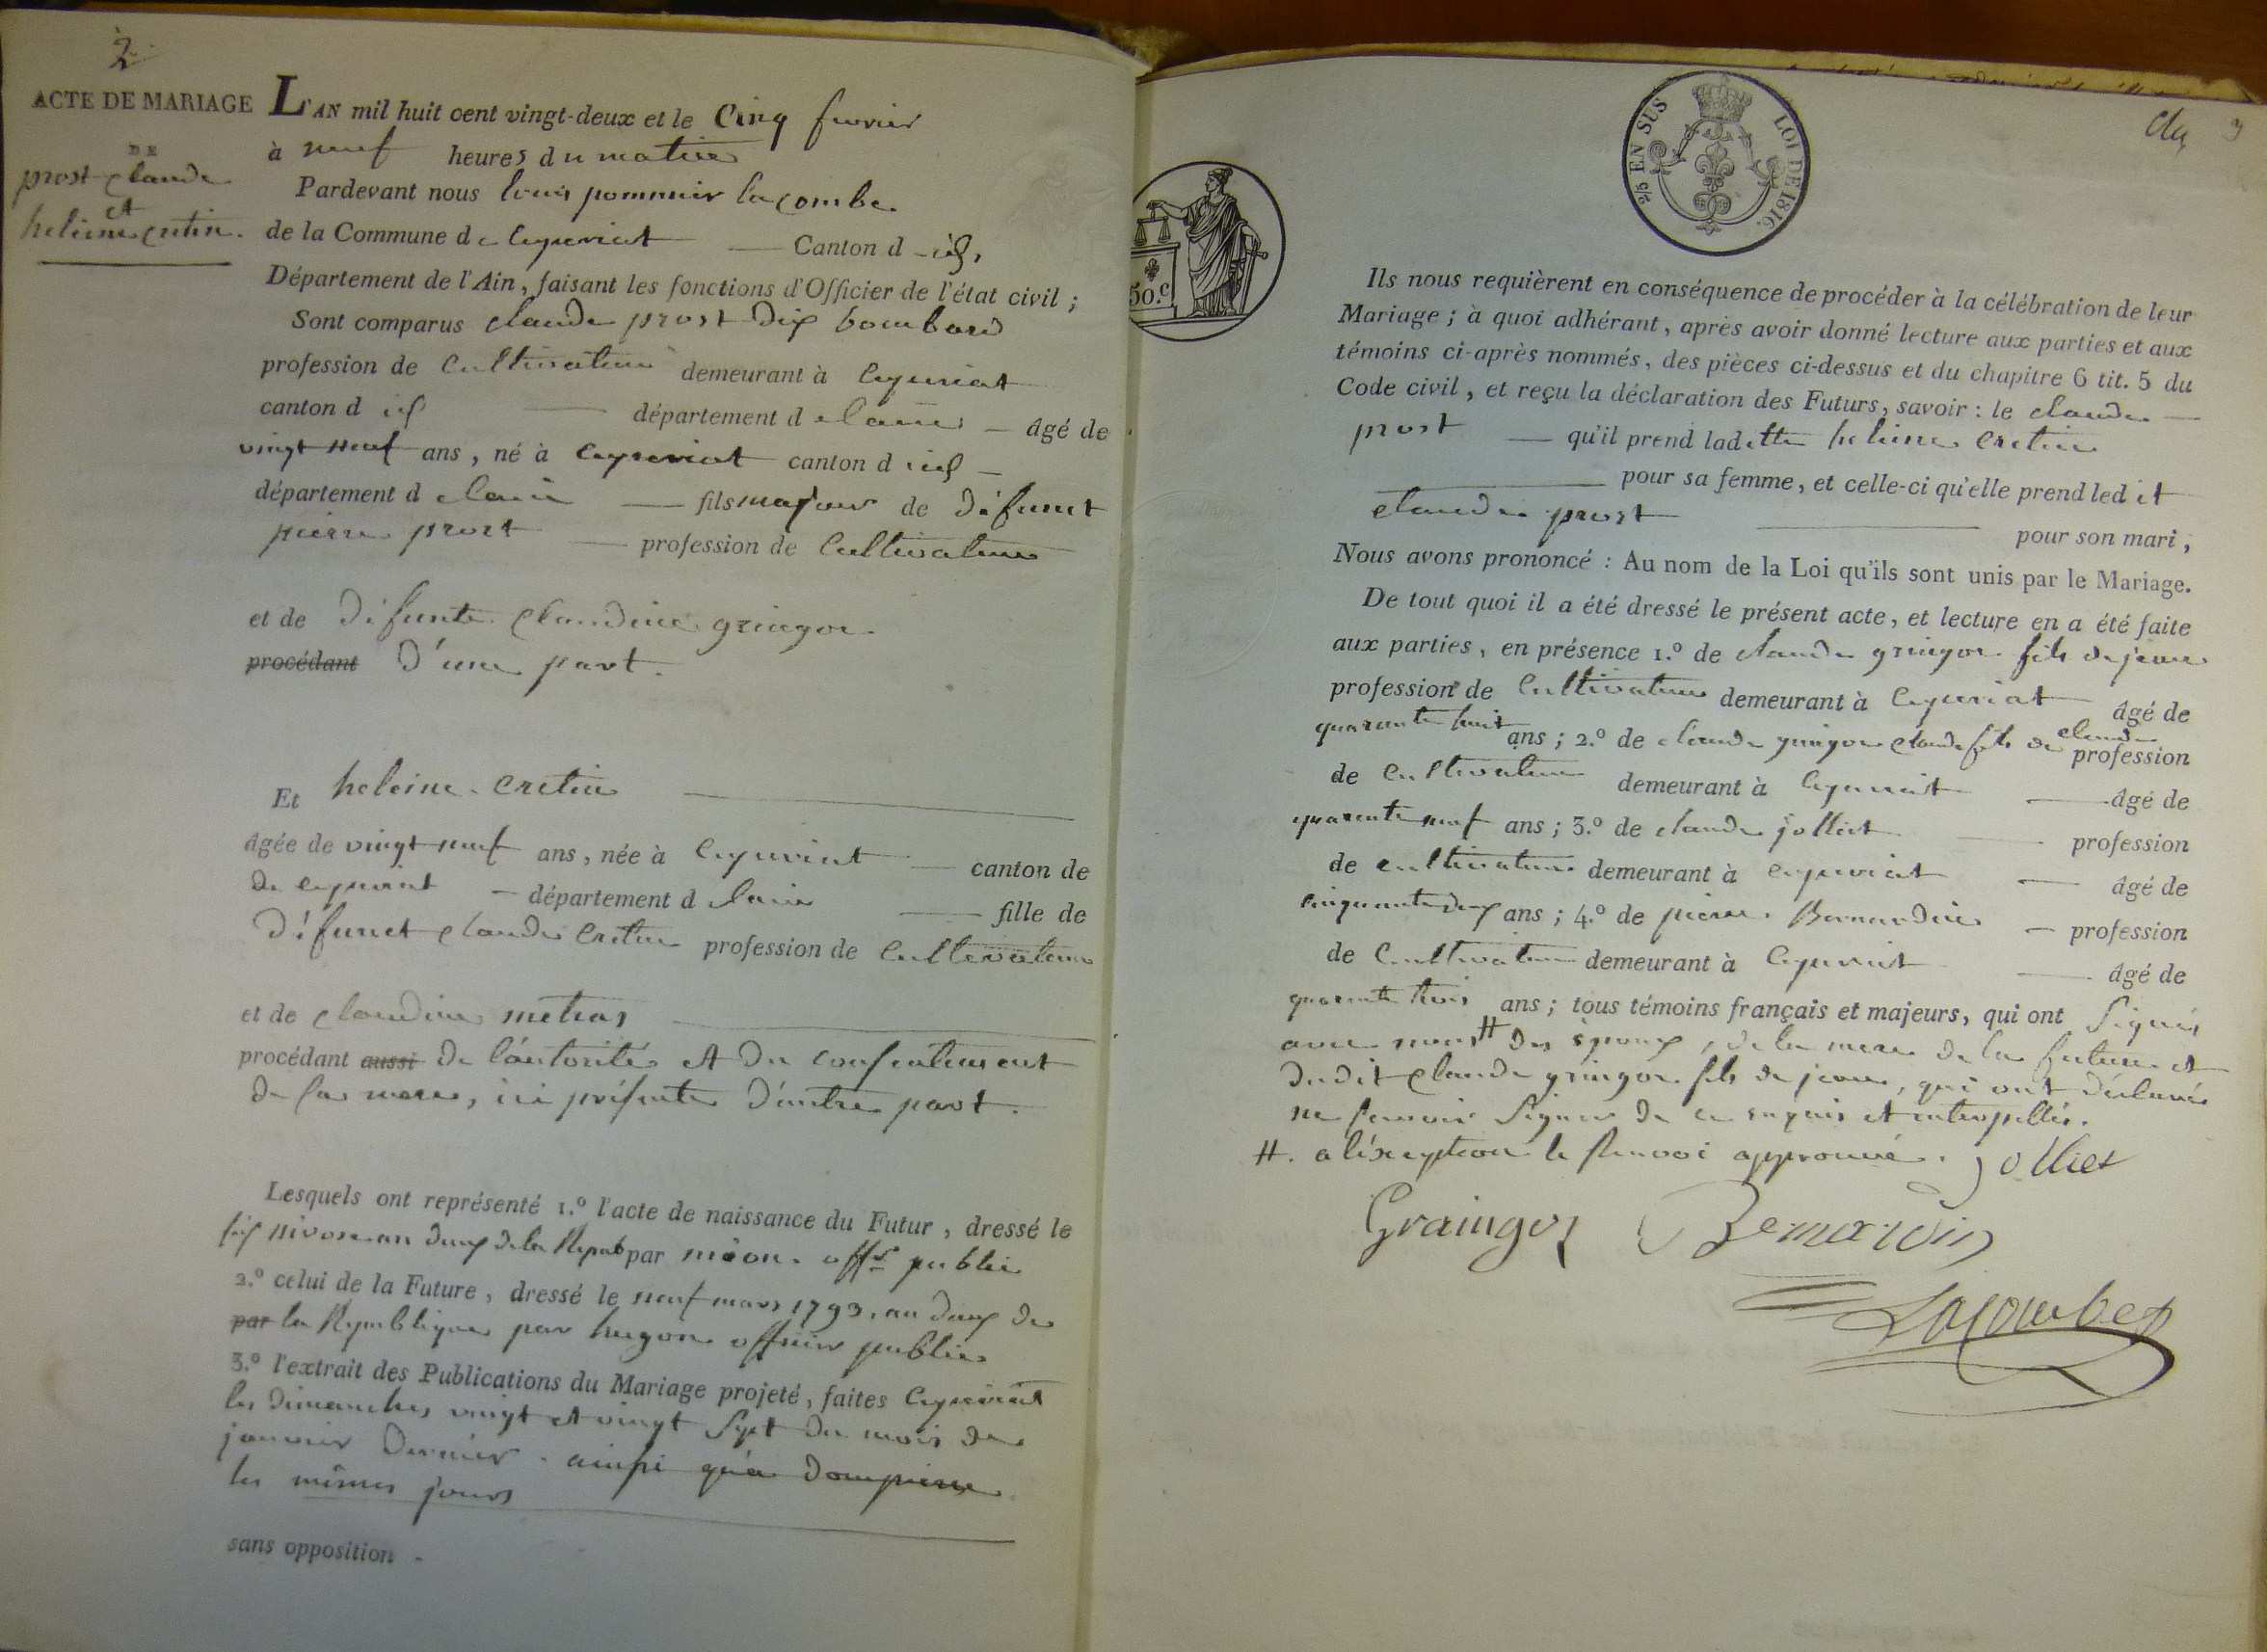 2
ACTE DE MARIAGE
DE
prost claude
et
heleine cretin.
L'AN mil huit cent vingt-deux et le Cinq fevrier
à neuf heures du matin
Pardevant nous louis pommier lacombe
de la Commune de Ceyzeriat Canton d id,
Département de l'Ain, faisant les fonctions d'Officier de l'état civil ;
Sont comparus claude prost dix bombard
profession de Cultivateur demeurant à Ceyzeriat
canton d id département d e l'ain âgé de
vingt neuf ans, né à Ceyzeriat canton d id
département d e l'ain fils majeur de défunt
pierre prost profession de Cultivateur
et de défunte Claudine gringoz
procédant d'une part.
Et heleine Cretin
âgée de vingt neuf ans, née à Ceyzeriat canton de
de ceyzeriat département d e l'ain fille de
défunct claude Cretin profession de Cultivateur
et de claudine metras
procédant aussi de l'autorité et du consentement
de sa mere, ici présente d'autre part.
Lesquels ont représenté 1.º l'acte de naissance du Futur, dressé le
six nivose an deux de la Repub par offr public
2.º celui de la Future, dressé le neuf mars 1793, an deux de
par la Republique par hugon officier public
3.º l'extrait des Publications du Mariage projeté, faites Ceyzeriat
les dimanches vingt et vingt sept du mois de
janvier dernier. ainsi qu'a dompierre
les mêmes jours
sans opposition -
2/5 EN SUS LOI DE 1816.
50.c
Ils nous requièrent en conséquence de procéder à la célébration de leur
Mariage ; à quoi adhérant, après avoir donné lecture aux parties et aux
témoins ci-après nommés, des pièces ci-dessus et du chapitre 6 tit. 5 du
Code civil, et reçu la déclaration des Futurs, savoir : le claude
prost qu'il prend ladette heleine Cretin
pour sa femme, et celle-ci qu'elle prend led it
claude prost pour son mari,
Nous avons prononcé : Au nom de la Loi qu'ils sont unis par le Mariage.
De tout quoi il a été dressé le présent acte, et lecture en a été faite
aux parties, en présence 1.º de claude gringoz fils de jean
profession de Cultivateur demeurant à Ceyzeriat âgé de
quarante huit ans ; 2.º de claude gringoz claude fils de claude profession
de Cultivateur demeurant à Ceyzeriat âgé de
quarante neuf ans ; 3.º de claude jolliet profession
de cultivateur demeurant à ceyzeriat âgé de
cinquante deux ans ; 4.º de pierre Bernardin profession
de Cultivateur demeurant à Ceyzeriat âgé de
quarante trois ans ; tous témoins français et majeurs, qui ont signés
avec nous # des époux, de la mere de la future et
dudit claude gringoz fils de jean, qui ont déclarés
ne savoir signer de ce enquis et interpellés.
#. a l'exception le Renvoi approuvé. jolliet
Graingoz Bernardin
Lacombe